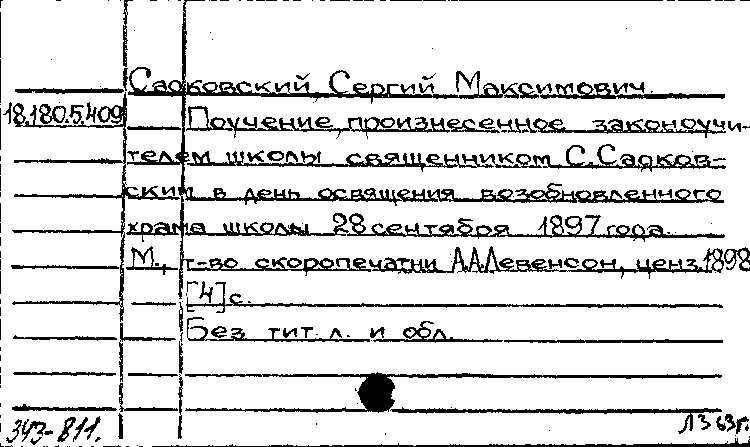 Садковский, Сергий Максимович.
18.180.5.409 Поучение, произнесенное законоучи-
телем школы священником С. Садков-
ским в день освящения возобновленного
храма школы 28 сентября 1897 года.
М., т-во скоропечатни А.А.Левенсон, ценз.1898
[4] с.
Без тит. л. и обл.
343-811. ЛЗ 63г.